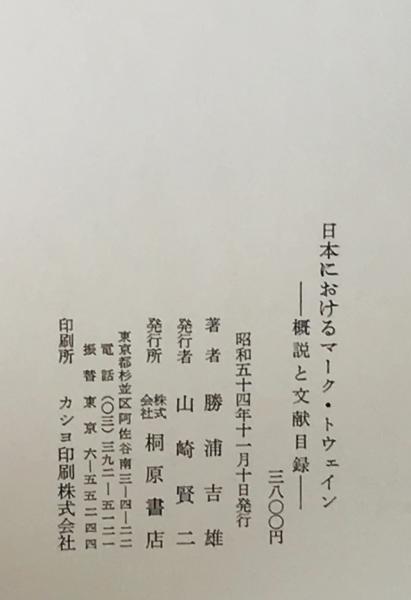 日本におけるマーク・トウェイン
――概説と文献目録――
三八〇〇円
昭和五十四年十一月十日発行
著者 勝浦吉雄
発行者 山崎賢二
発行所 株式会社 桐原書店
東京都杉並区阿佐谷南三―四―二二
電話(〇三)三九二―五一二一
振替東京六―五五二四四
印刷所 カシヨ印刷株式会社